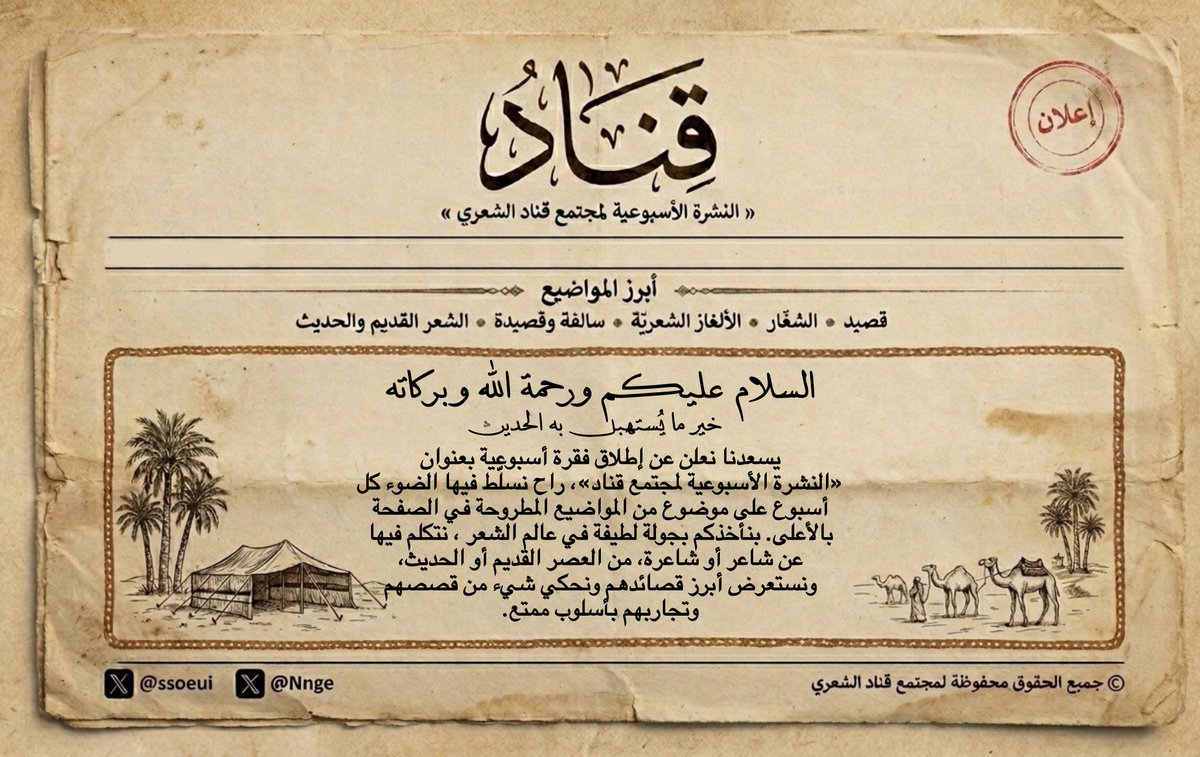 قِنَادُ
إعلان
« النشرة الأسبوعية لمجتمع قناد الشعري »
أبرز المواضيع
قصيد • الشعّار • الألغاز الشعريّة • سالفة وقصيدة • الشعر القديم والحديث
السلام عليكم ورحمة الله وبركاته
خير ما يُستهبل به الحديث
يسعدنا نعلن عن إطلاق فقرة أسبوعية بعنوان
«النشرة الأسبوعية لمجتمع قناد»، راح نسلّط فيها الضوء كل
أسبوع على موضوع من المواضيع المطروحة في الصفحة
بالأعلى. بنأخذكم بجولة لطيفة في عالم الشعر ، نتكلم فيها
عن شاعر أو شاعرة، من العصر القديم أو الحديث،
ونستعرض أبرز قصائدهم ونحكي شيء من قصصهم
وتجاربهم بأسلوب ممتع.
© جميع الحقوق محفوظة لمجتمع قناد الشعري
@ssoeui @Nnge